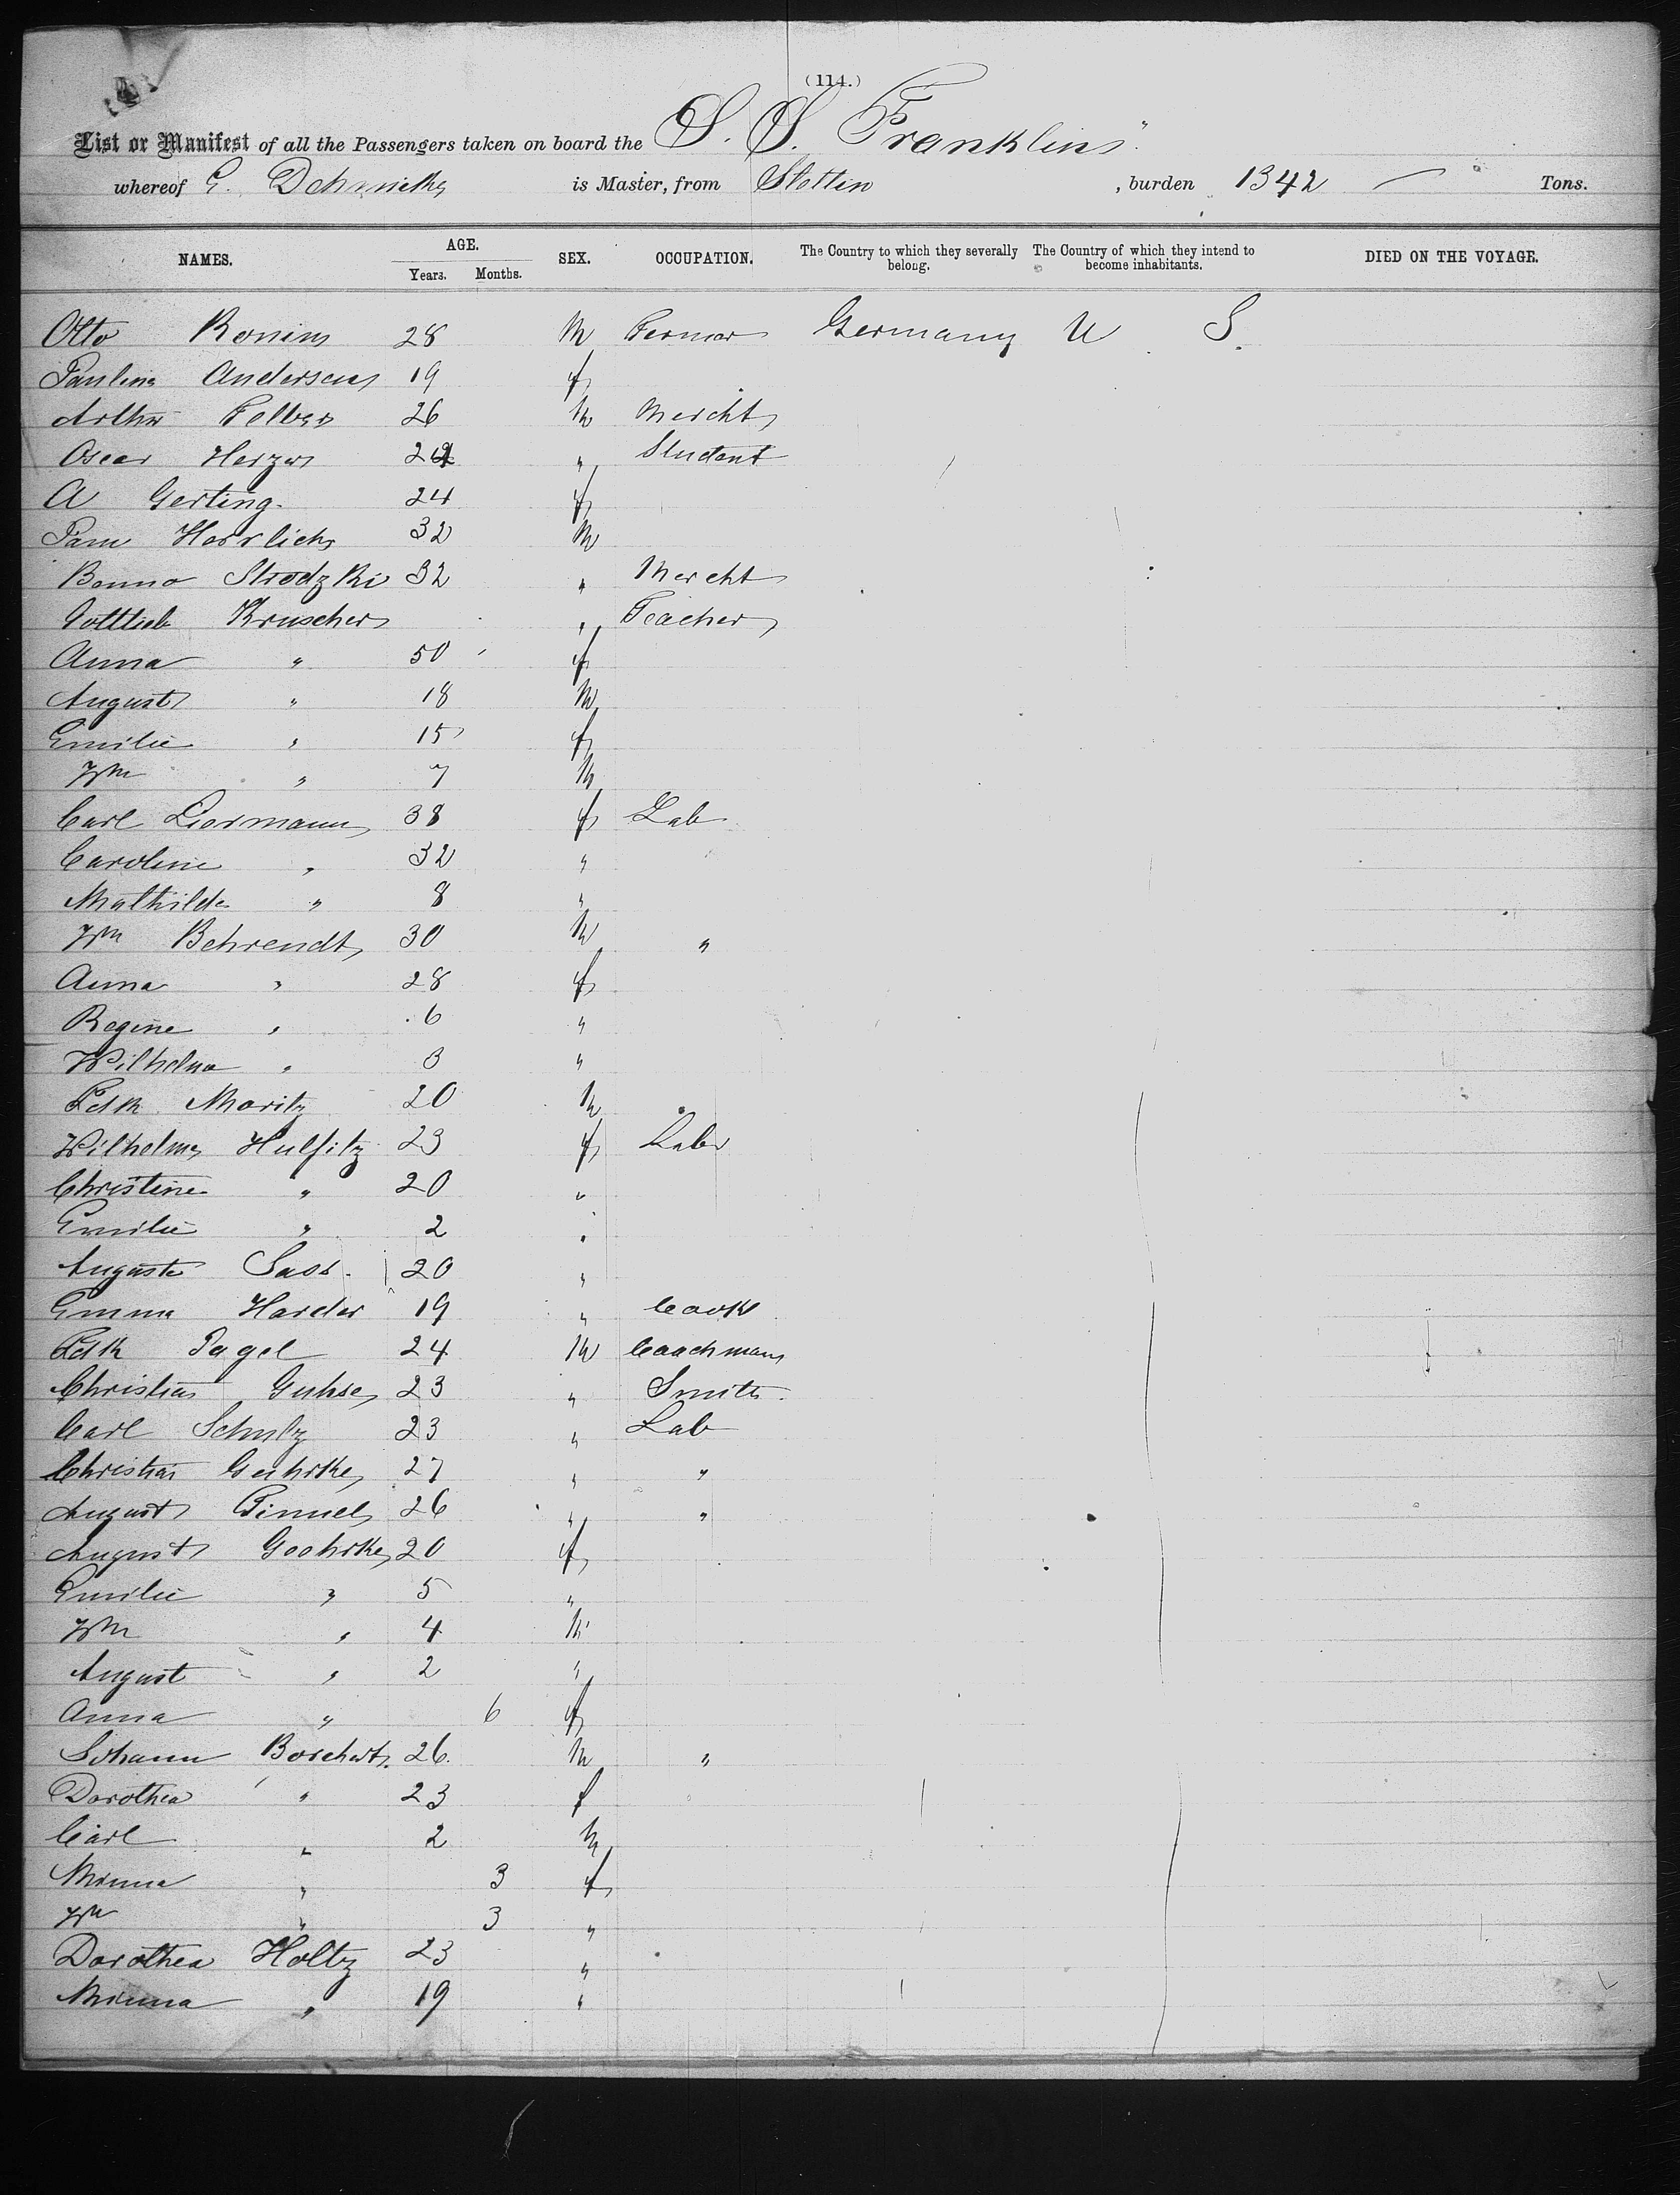 (114.)
List or Manifest of all the Passengers taken on board the S. S. Franklin"
whereof G. is Master, from Stettin , burden 1342 — Tons.
NAMES. AGE. Years. Months. SEX. OCCUPATION. The Country to which they severally belong. The Country of which they intend to become inhabitants. DIED ON THE VOYAGE.
Otto Ronim 28 M Germany U S.
Pauline Andersen 19 f
Arthur Felber 26 M Mercht
Oscar Herzer " Student
A Gerting. 24 f
Herrlich 32 M
Benno Strodzki 32 " Mercht
Gottlieb Kruscher " Teacher
Anna " 50 f
August " 18 M
Emilie " 15 f
Wm " 7 M
Carl Liermann 38 f Lab
Caroline " 32 "
Mathilde " 8 "
Wm Behrendt 30 M "
Anna " 28 f
Regine " 6 "
" 3 "
Fdk Moritz 20 M
Hulfitz 23 f Lab
Christine " 20 "
Emilie " 2 "
Auguste Sass. 20 "
Emma Harder 19 " Cook
Fdk Pagel 24 M Coachman
Christian Guhse 23 " Smith
Carl Schulz 23 " Lab
Christian 27 " "
August 26 " "
August 20 f
Emilie " 5 "
Wm " 4 M
August " 2 "
Anna " 6 f
Johann Borchert 26. M "
Dorothea " 23 f
Carl " 2 M
Minna " 3 f
Wm " 3 "
Dorothea Holtz 23 "
Minna " 19 "